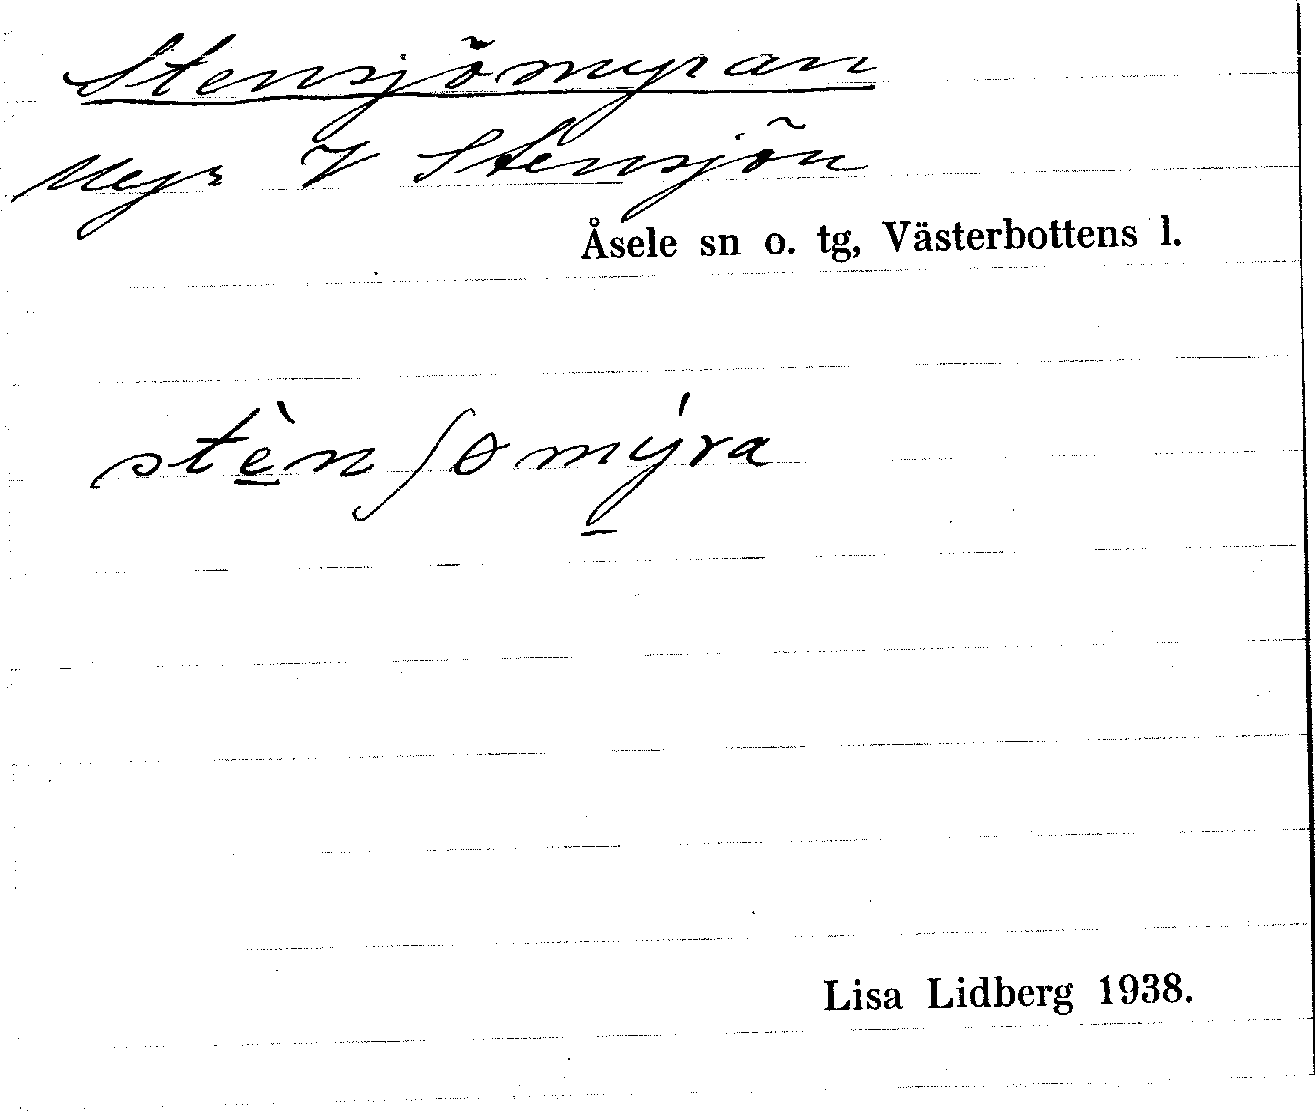 Stensjömyran
Myr V Stensjön
Åsele sn o. tg, Västerbottens l.
stèn̲ʃomý̲ra
Lisa Lidberg 1938.